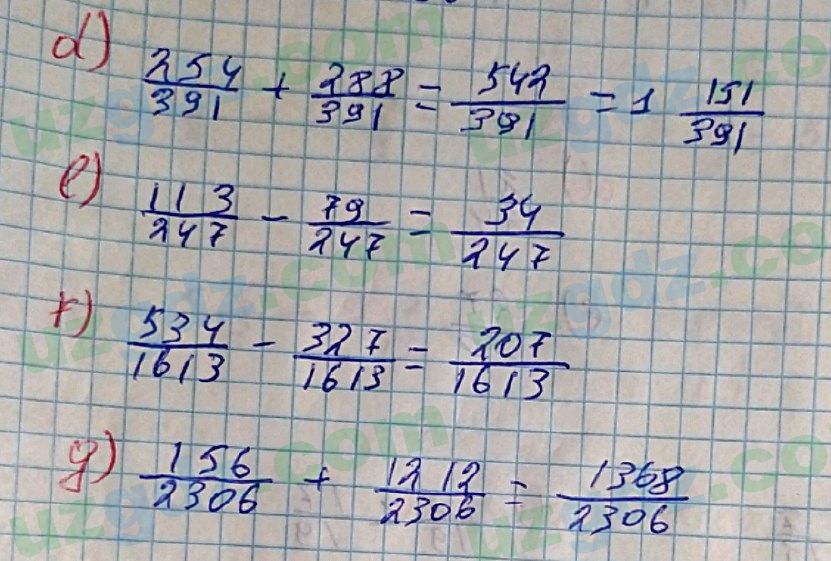 d) 254/391 + 288/391 = 542/391 = 1 151/391
e) 113/247 - 79/247 = 34/247
f) 534/1613 - 327/1613 = 207/1613
g) 156/2306 + 1212/2306 = 1368/2306
uzgdz.com